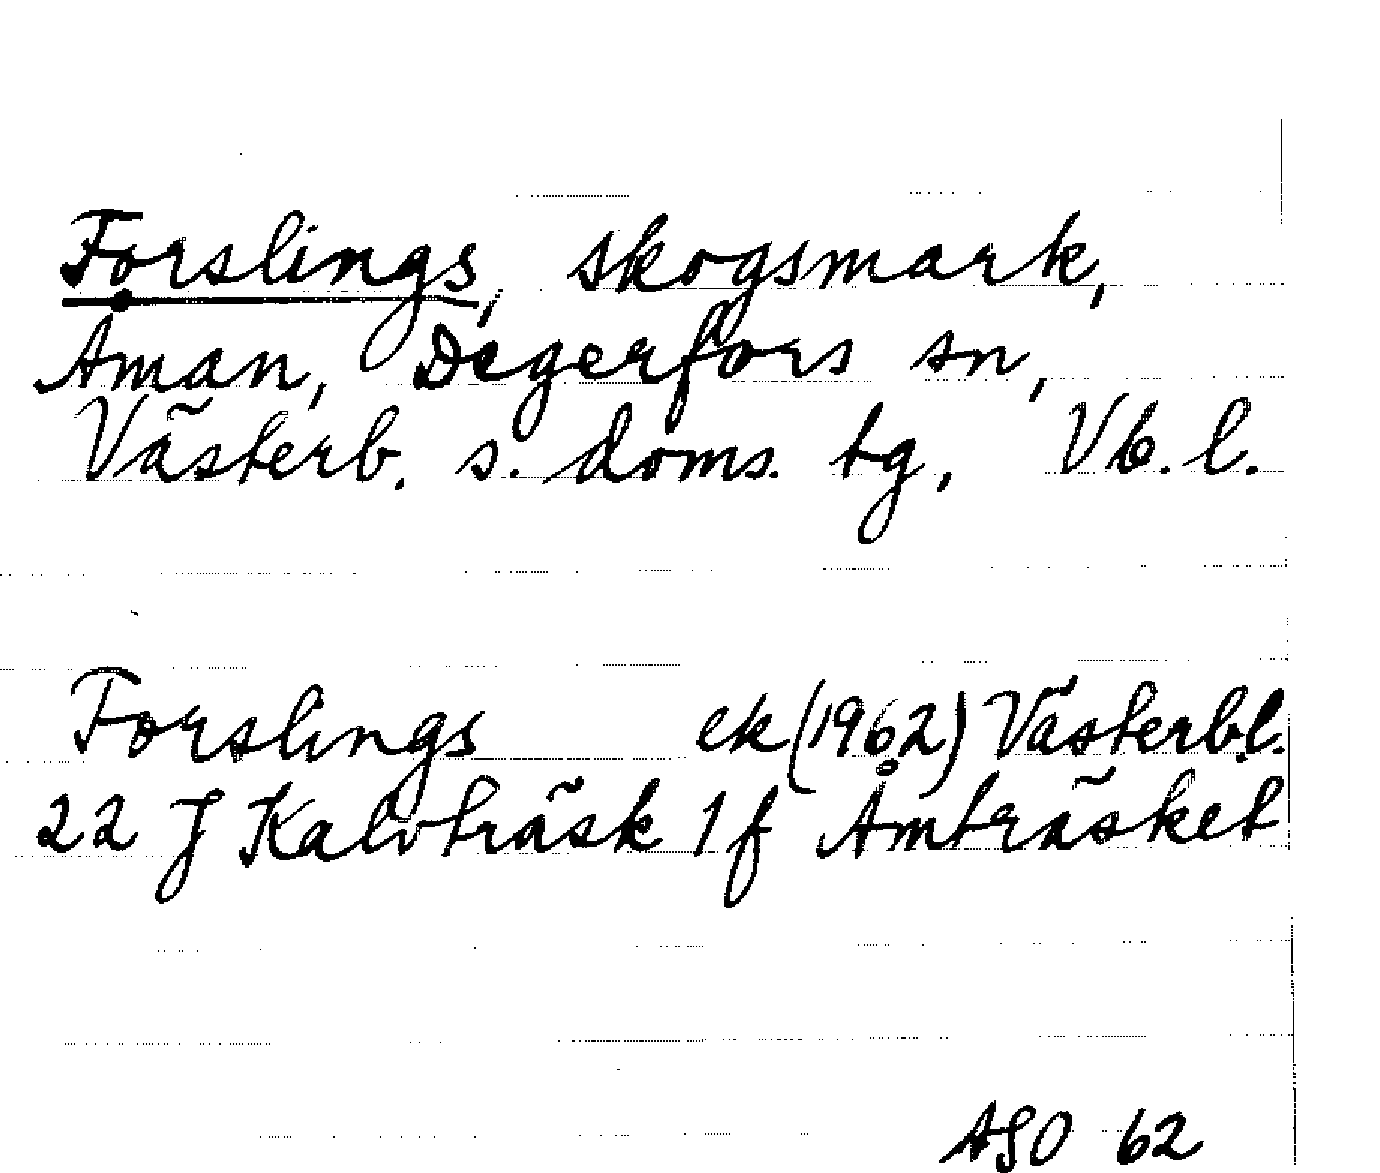 Forslings, skogsmark,
Åman, Degerfors sn,
Västerb. s. doms. tg, Vb. l.
Forslings ek (1962) Västerb.l.
22 J Kalvträsk 1f Åmträsket
ASO 62